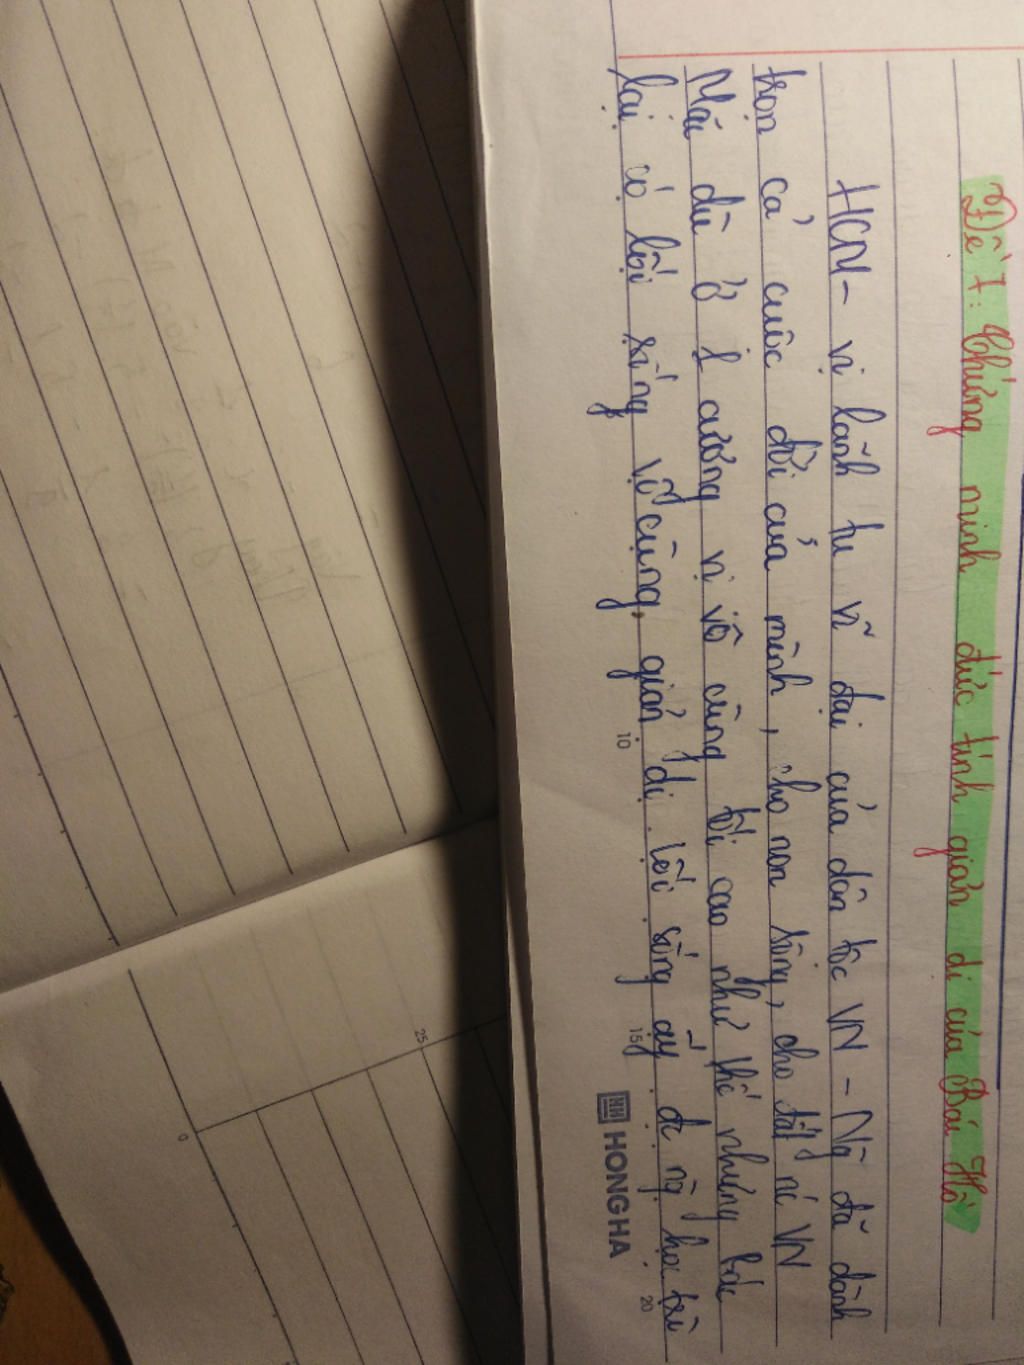 Đề 7: Chứng minh đức tính giản dị của Bác Hồ
HCM - vị lãnh tụ vĩ đại của dân tộc VN - Ng đã dành
trọn cả cuộc đời của mình, cho non sông, cho đất nc VN
Mặc dù ở 1 cương vị vô cùng tối cao như thế nhưng bác
lại có lối sống vô cùng giản dị. Lối sống ấy đc ng học trò
10
15
20
HONG HA
25
0